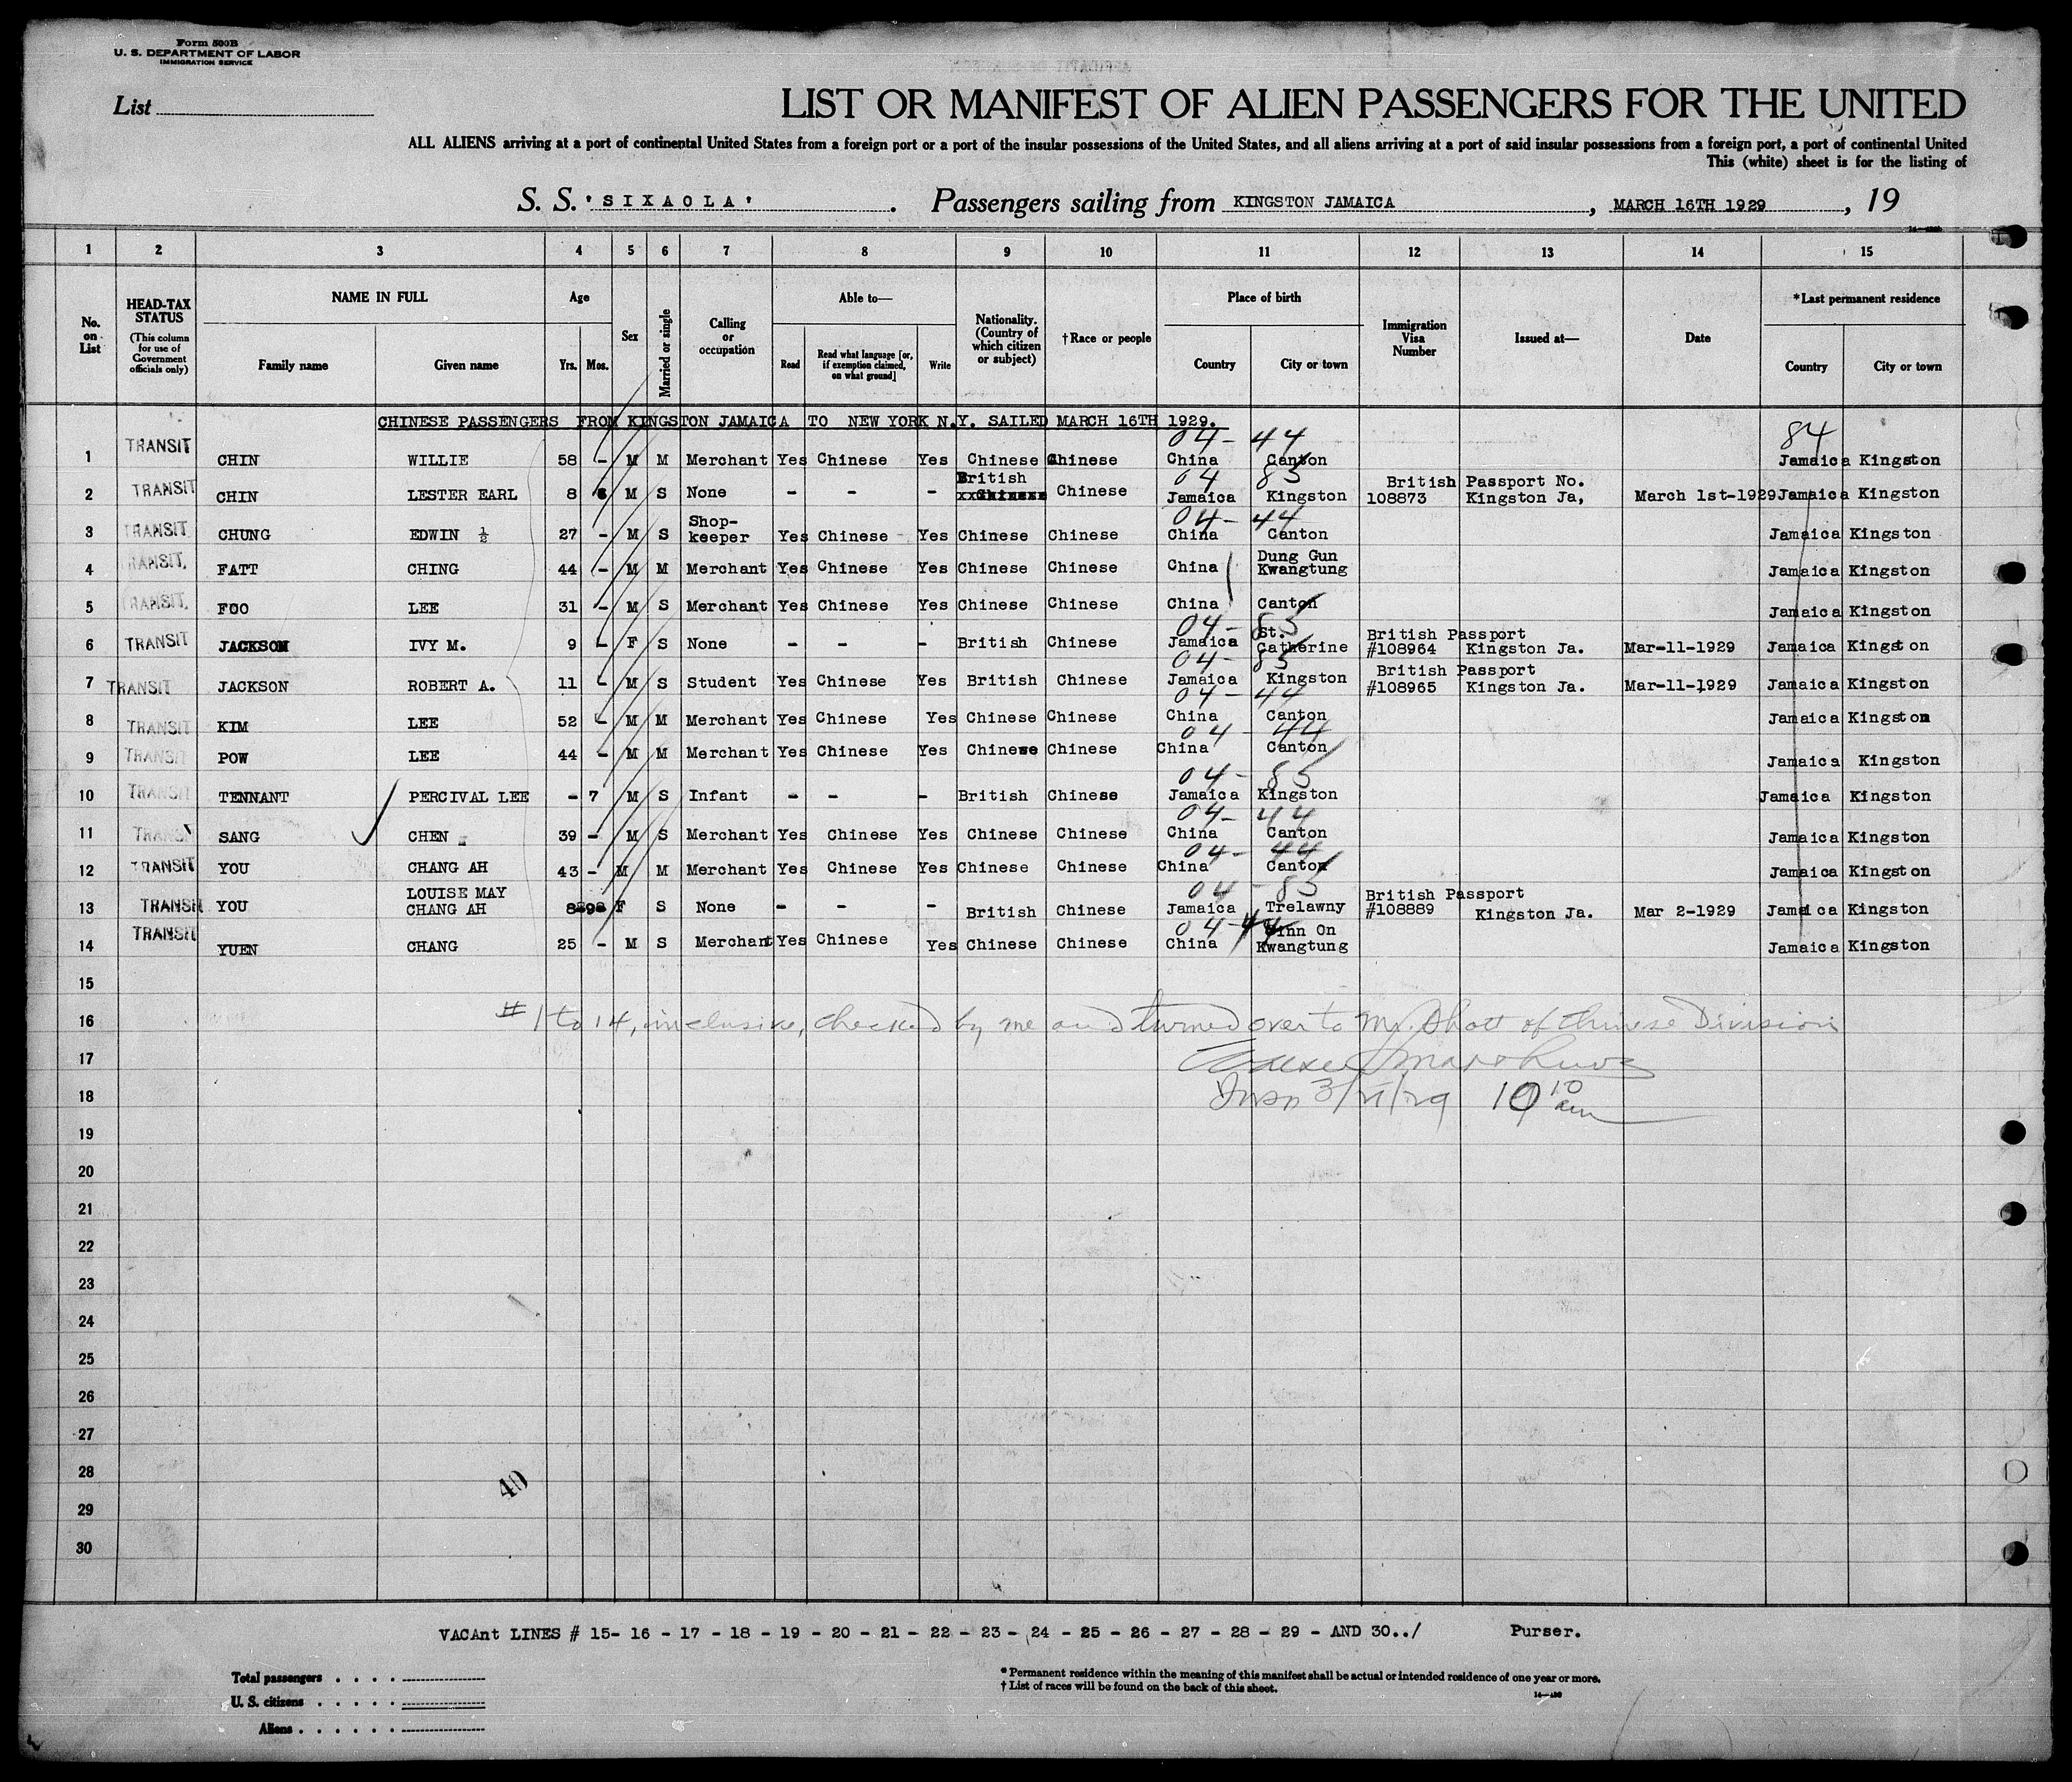 Form 500B
U. S. DEPARTMENT OF LABOR
IMMIGRATION SERVICE
List
LIST OR MANIFEST OF ALIEN PASSENGERS FOR THE UNITED
ALL ALIENS arriving at a port of continental United States from a foreign port or a port of the insular possessions of the United States, and all aliens arriving at a port of said insular possessions from a foreign port, a port of continental United
This (white) sheet is for the listing of
S. S. ' SIXAOLA ' . Passengers sailing from KINGSTON JAMAICA , MARCH 16TH 1929 , 19
1 2 3 4 5 6 7 8 9 10 11 12 13 14 15
No. on List
HEAD-TAX STATUS (This column for use of Government officials only)
NAME IN FULL Family name Given name
Age Yrs. Mos.
Sex
Married or single
Calling or occupation
Able to— Read Read what language [or, if exemption claimed, on what ground] Write
Nationality. (Country of which citizen or subject)
†Race or people
Place of birth Country City or town
Immigration Visa Number
Issued at—
Date
*Last permanent residence Country City or town
CHINESE PASSENGERS FROM KINGSTON JAMAICA TO NEW YORK N.Y. SAILED MARCH 16TH 1929.
04 - 44 84
1 TRANSIT CHIN WILLIE 58 - M M Merchant Yes Chinese Yes Chinese Chinese China Canton Jamaica Kingston
04 85
2 TRANSIT CHIN LESTER EARL 8 6 M S None - - - British Chinese Jamaica Kingston British Passport No. 108873 Kingston Ja, March 1st-1929 Jamaica Kingston
04 - 44
3 TRANSIT CHUNG EDWIN ½ 27 - M S Shop-keeper Yes Chinese Yes Chinese Chinese China Canton Jamaica Kingston
4 TRANSIT. FATT CHING 44 - M M Merchant Yes Chinese Yes Chinese Chinese China Dung Gun Kwangtung Jamaica Kingston
5 TRANSIT. FOO LEE 31 - M S Merchant Yes Chinese Yes Chinese Chinese China Canton Jamaica Kingston
04 - 85
6 TRANSIT JACKSON IVY M. 9 - F S None - - - British Chinese Jamaica St. Catherine British Passport #108964 Kingston Ja. Mar-11-1929 Jamaica Kingston
04 - 85
7 TRANSIT JACKSON ROBERT A. 11 - M S Student Yes Chinese Yes British Chinese Jamaica Kingston British Passport #108965 Kingston Ja. Mar-11-1929 Jamaica Kingston
04 - 44
8 TRANSIT KIM LEE 52 - M M Merchant Yes Chinese Yes Chinese Chinese China Canton Jamaica Kingston
04 - 44
9 TRANSIT POW LEE 44 - M M Merchant Yes Chinese Yes Chinese Chinese China Canton Jamaica Kingston
04 - 85
10 TRANSIT TENNANT PERCIVAL LEE - 7 M S Infant - - - British Chinese Jamaica Kingston Jamaica Kingston
04 - 44
11 TRANSIT SANG CHEN 39 - M S Merchant Yes Chinese Yes Chinese Chinese China Canton Jamaica Kingston
04 - 44
12 TRANSIT YOU CHANG AH 43 - M M Merchant Yes Chinese Yes Chinese Chinese China Canton Jamaica Kingston
04 - 85
13 TRANSIT YOU LOUISE MAY CHANG AH 8 F S None - - - British Chinese Jamaica Trelawny British Passport #108889 Kingston Ja. Mar 2-1929 Jamaica Kingston
04 - 44
14 TRANSIT YUEN CHANG 25 - M S Merchant Yes Chinese Yes Chinese Chinese China On Kwangtung Jamaica Kingston
15
16 # 1 to 14, inclusive, checked by me and turned over to Mr. of Chinese Division
17
18 Insp 3/21/29 10 10 am
19
20
21
22
23
24
25
26
27
28
40
29
30
VACAnt LINES # 15- 16 - 17 - 18 - 19 - 20 - 21 - 22 - 23 - 24 - 25 - 26 - 27 - 28 - 29 - AND 30../ Purser.
Total passengers
U. S. citizens
Aliens
* Permanent residence within the meaning of this manifest shall be actual or intended residence of one year or more.
† List of races will be found on the back of this sheet.